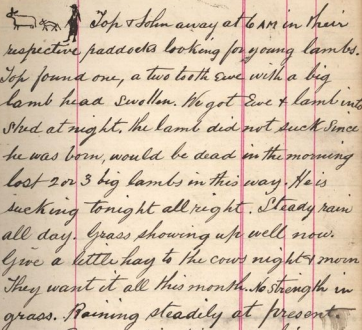 Top & John away at 6 AM in their
respective paddocks looking for young lambs.
Top found one, a two tooth Ewe with a big
lamb head swollen. We got Ewe & lamb into
shed at night. The lamb did not suck since
he was born, would be dead in the morning
lost 2 or 3 big lambs in this way. He is
sucking tonight all right. Steady rain
all day. Grass showing up well now.
Give a little hay to the cows night & morn
They want it all this month. No strength in
grass. Raining steadily at present